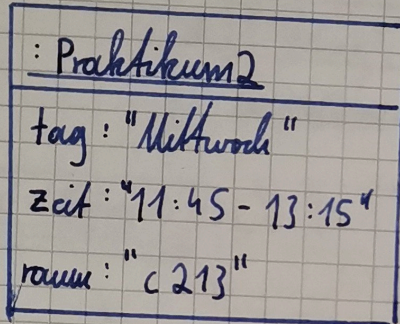 : Praktikum2
tag : "Mittwoch"
zeit : "11:45 - 13:15"
raum : "c 213"